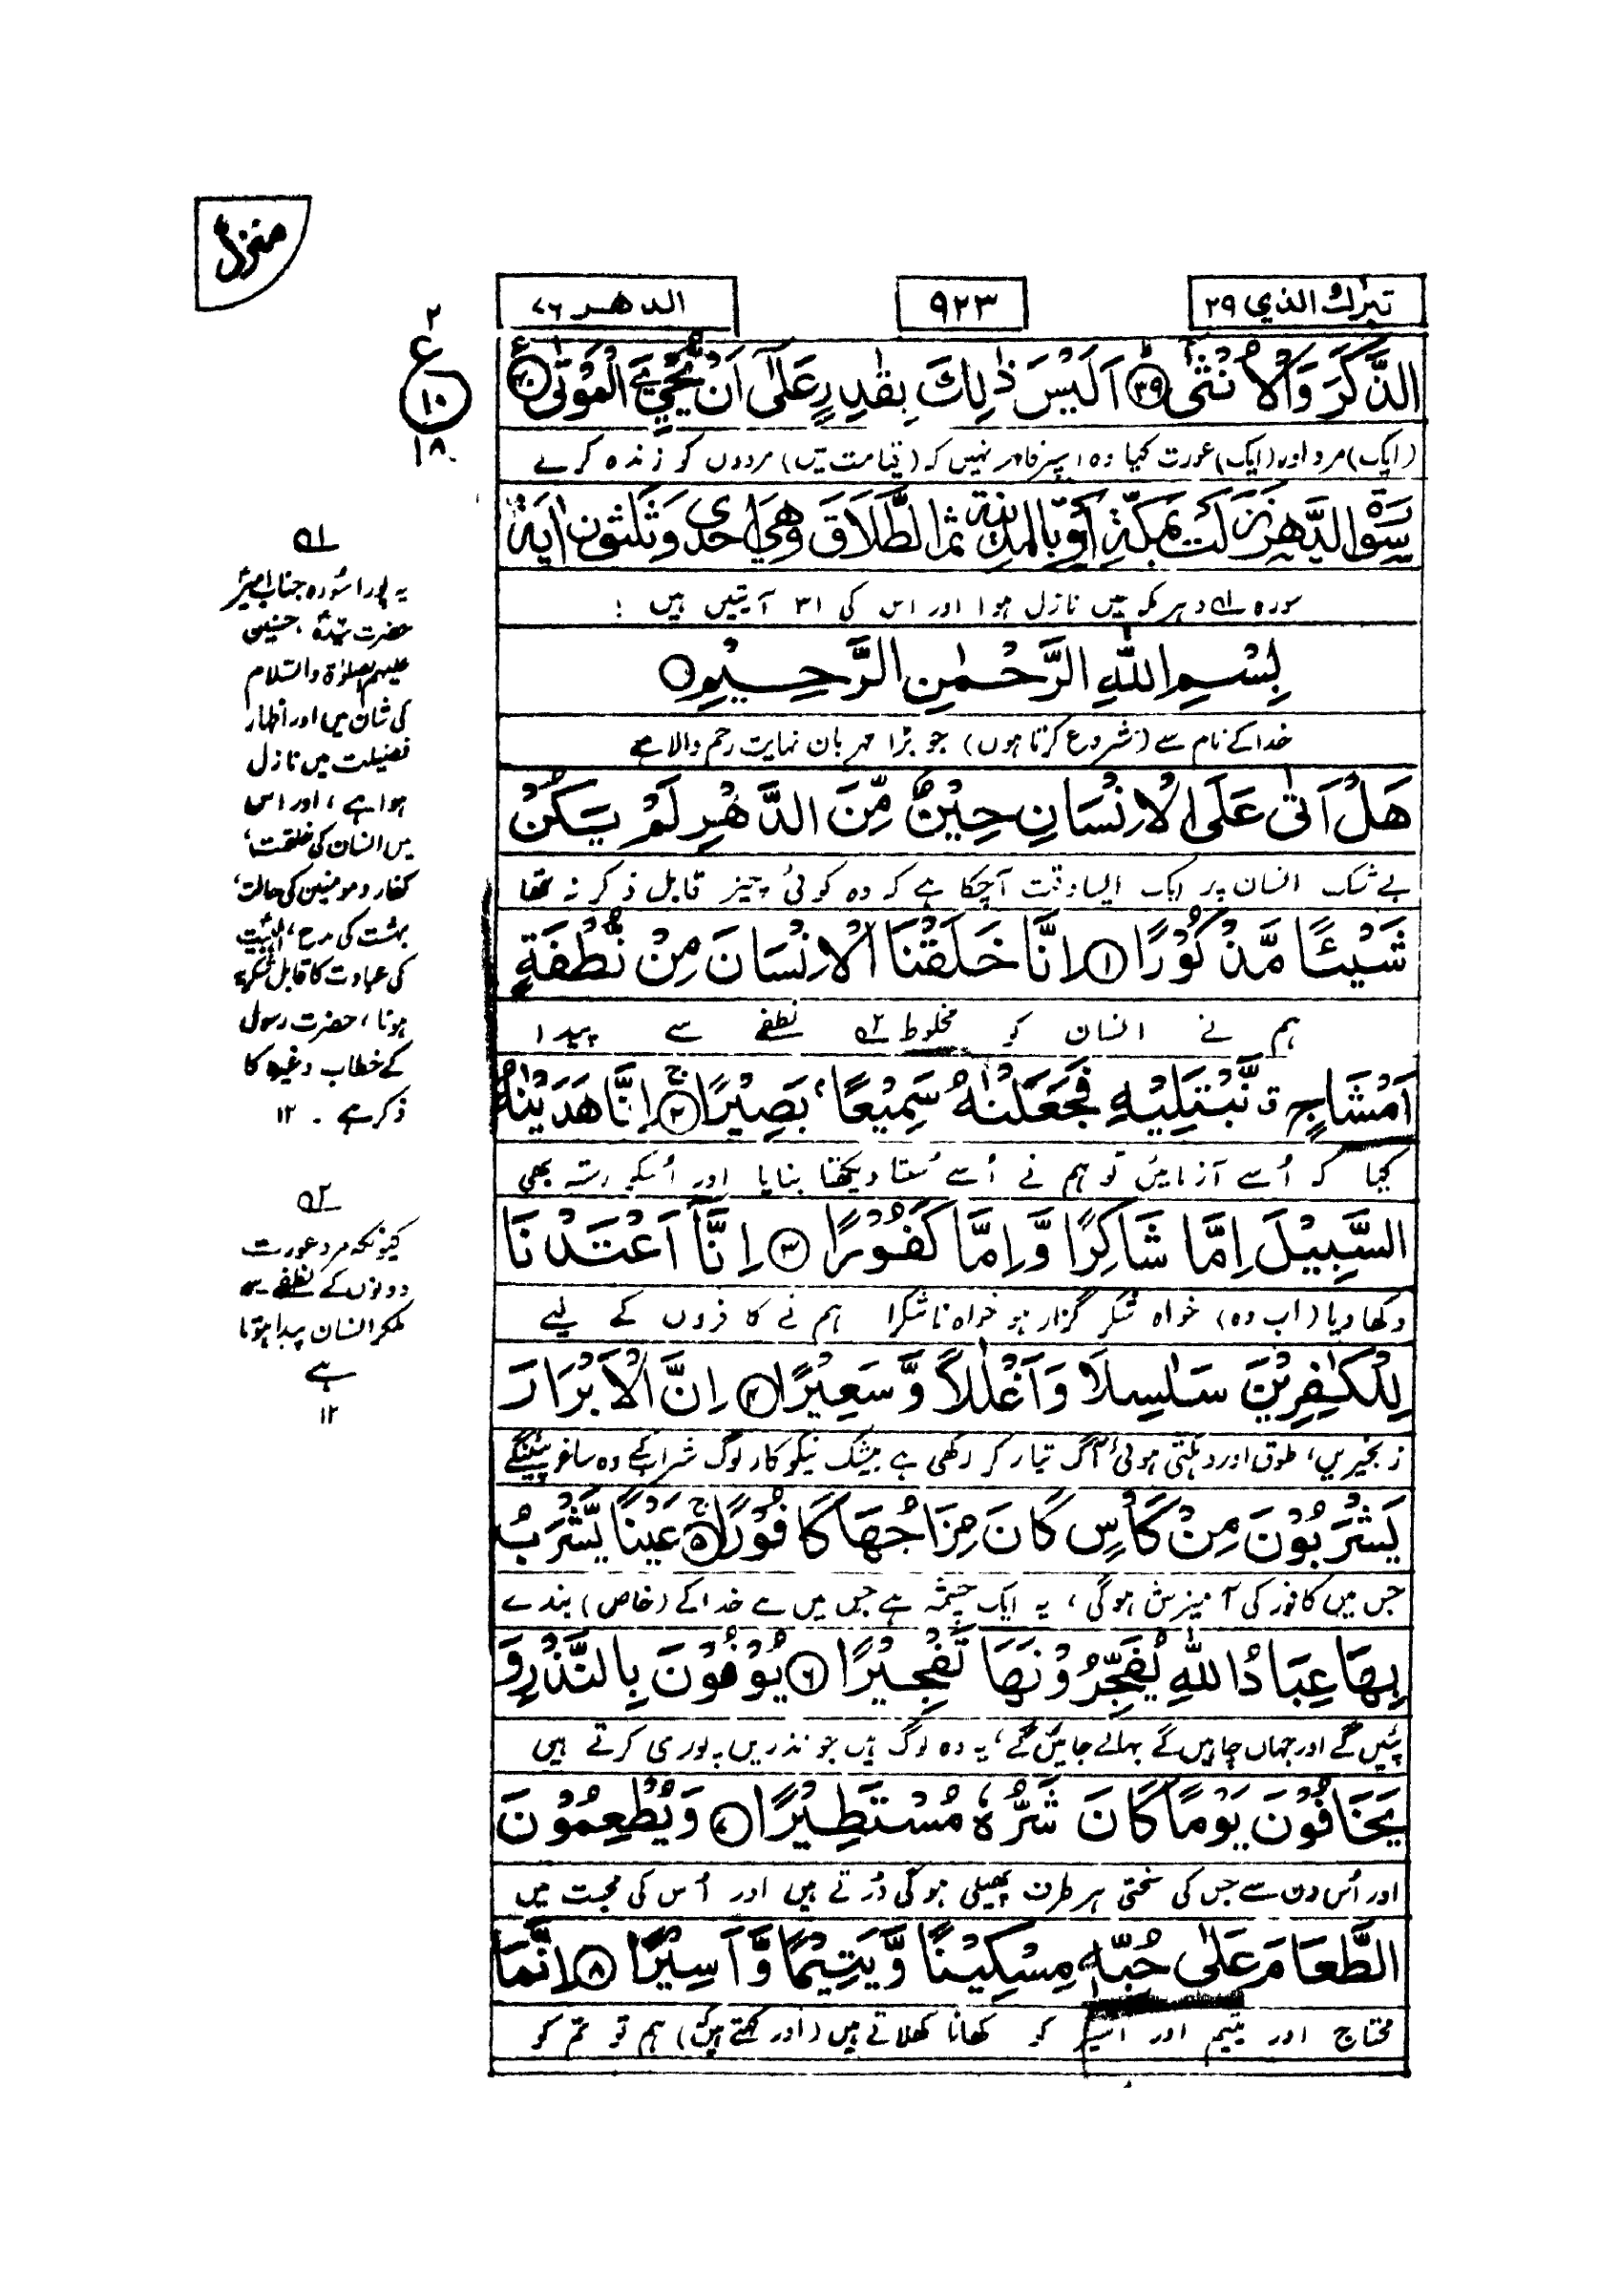 منزل
تبٰرك الذي ۲۹
۹۲۳
الدهر ۷۶
الذَّكَرَ وَالْاُنْثٰى ﴿۳۹﴾ اَلَيْسَ ذٰلِكَ بِقٰدِرٍ عَلٰٓى اَنْ يُّحْيِۦَ الْمَوْتٰى ﴿۴۰﴾
(ایک) مرد اور (ایک) عورت کیا وہ اسپر قادر نہیں کہ (قیامت میں) مردوں کو زندہ کرے
سُوْرَةُ الدَّهْرِ نَزَلَتْ بِمَكَّةَ اَوْ بِالْمَدِيْنَةِ ثم الطَّلَاقَ وَهِيَ اِحْدٰى وَثَلٰثُوْنَ اٰيَةً
سورہ ؎۱ دہر مکہ میں نازل ہوا اور اس کی ۳۱ آیتیں ہیں :
بِسْمِ اللّٰهِ الرَّحْمٰنِ الرَّحِيْمِ
خدا کے نام سے (شروع کرتا ہوں) جو بڑا مہربان نہایت رحم والا ہے
هَلْ اَتٰى عَلَى الْاِنْسَانِ حِيْنٌ مِّنَ الدَّهْرِ لَمْ يَكُنْ
بے شک انسان پر ایک ایسا وقت آچکا ہے کہ وہ کوئی چیز قابل ذکر نہ تھا
شَيْئًا مَّذْكُوْرًا ﴿۱﴾ اِنَّا خَلَقْنَا الْاِنْسَانَ مِنْ نُّطْفَةٍ
ہم نے انسان کو مخلوط ؎۲ نطفے سے پیدا
اَمْشَاجٍ ق نَّبْتَلِيْهِ فَجَعَلْنٰهُ سَمِيْعًۢا بَصِيْرًا ﴿۲﴾ ج اِنَّا هَدَيْنٰهُ
کیا کہ اُسے آزمائیں تو ہم نے اُسے سُنتا دیکھتا بنایا اور اُسکو رستہ بھی
السَّبِيْلَ اِمَّا شَاكِرًا وَّاِمَّا كَفُوْرًا ﴿۳﴾ اِنَّآ اَعْتَدْنَا
دکھا دیا (اب وہ) خواہ شکر گزار ہو خواہ ناشکرا ہم نے کافروں کے لیے
لِلْكٰفِرِيْنَ سَلٰسِلَا وَاَغْلٰلًا وَّسَعِيْرًا ﴿۴﴾ اِنَّ الْاَبْرَارَ
زنجیریں، طوق اور دہکتی ہوئی آگ تیار کر رکھی ہے بیشک نیکوکار لوگ شراب کے وہ ساغر پئیں گے
يَشْرَبُوْنَ مِنْ كَاْسٍ كَانَ مِزَاجُهَا كَافُوْرًا ﴿۵﴾ ج عَيْنًا يَّشْرَبُ
جس میں کافور کی آمیزش ہوگی، یہ ایک چشمہ ہے جس میں سے خدا کے (خاص) بندے
بِهَا عِبَادُ اللّٰهِ يُفَجِّرُوْنَهَا تَفْجِيْرًا ﴿۶﴾ يُوْفُوْنَ بِالنَّذْرِ وَ
پئیں گے اور جہاں چاہیں گے بہالے جائیں گے، یہ وہ لوگ ہیں جو نذریں پوری کرتے ہیں
يَخَافُوْنَ يَوْمًا كَانَ شَرُّهٗ مُسْتَطِيْرًا ﴿۷﴾ وَيُطْعِمُوْنَ
اور اُس دن سے جس کی سختی ہر طرف پھیلی ہوگی ڈرتے ہیں اور اُس کی محبت میں
الطَّعَامَ عَلٰى حُبِّهٖ مِسْكِيْنًا وَّيَتِيْمًا وَّاَسِيْرًا ﴿۸﴾ اِنَّمَا
محتاج اور یتیم اور اسیر کو کھانا کھلاتے ہیں (اور کہتے ہیں) ہم تو تم کو
۲
ع
۱۰
۱۸
؎۱
یہ پورا سُورہ جناب امیرؑ
حضرت سیدہؑ، حسنین
علیہم الصلوٰۃ والسّلام
کی شان میں اور اظہار
فضیلت میں نازل
ہوا ہے، اور اس
میں انسان کی خلقت،
کفار و مومنین کی حالت،
بہشت کی مدح، اہلبیتؑ
کی عبادت کا قابل شکریہ
ہونا، حضرت رسول
کے خطاب وغیرہ کا
ذکر ہے۔ ۱۲
؎۲
کیونکہ مرد عورت
دونوں کے نطفے سے
ملکر انسان پیدا ہوتا
ہے
۱۲